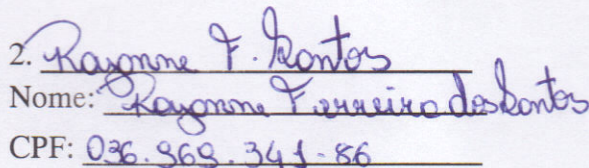 2. Rayonne F. Santos
Nome: Rayonne Ferreira dos Santos
CPF: 036.969.341-86